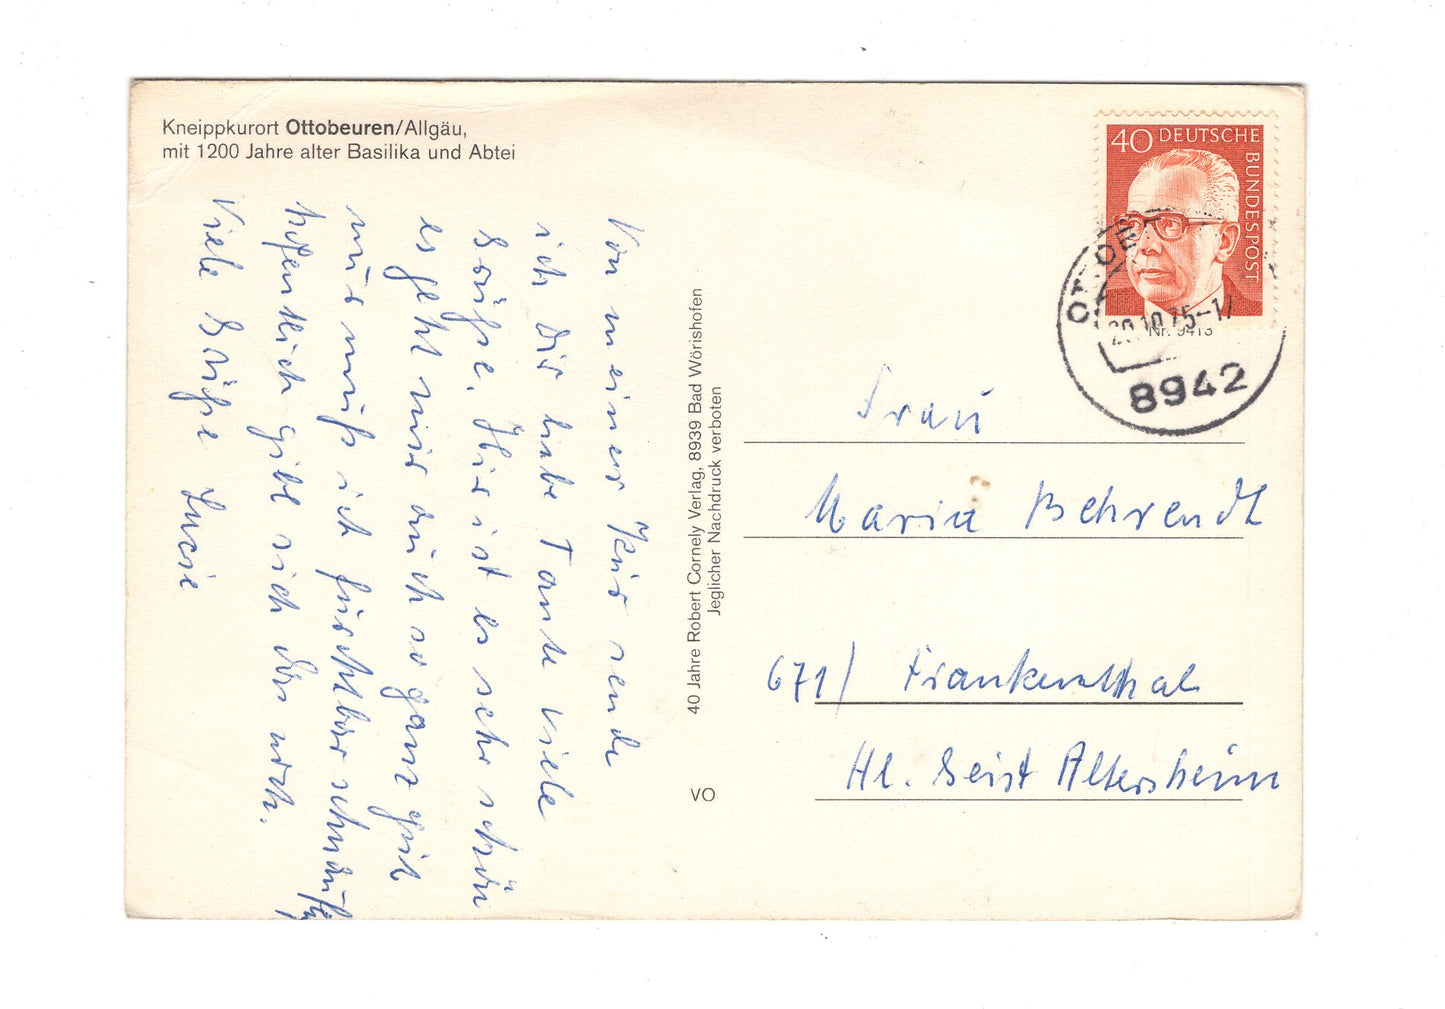 Kneippkurort Ottobeuren/Allgäu,
mit 1200 Jahre alter Basilika und Abtei
Von meiner Kur sende
ich Dir liebe Tante viele
Grüße. Hier ist es sehr schön
es geht mir auch so ganz gut
nur muß ich fürchtbar schnaufen
hofentlich gibt sich das noch.
Viele Grüße Lucie
40 Jahre Robert Cornely Verlag, 8939 Bad Wörishofen
Jeglicher Nachdruck verboten
VO
40 DEUTSCHE
BUNDESPOST
Nr. 9413
8942
Frau
Maria Behrendt
671/ Frankenthal
Hl. Geist Altersheim